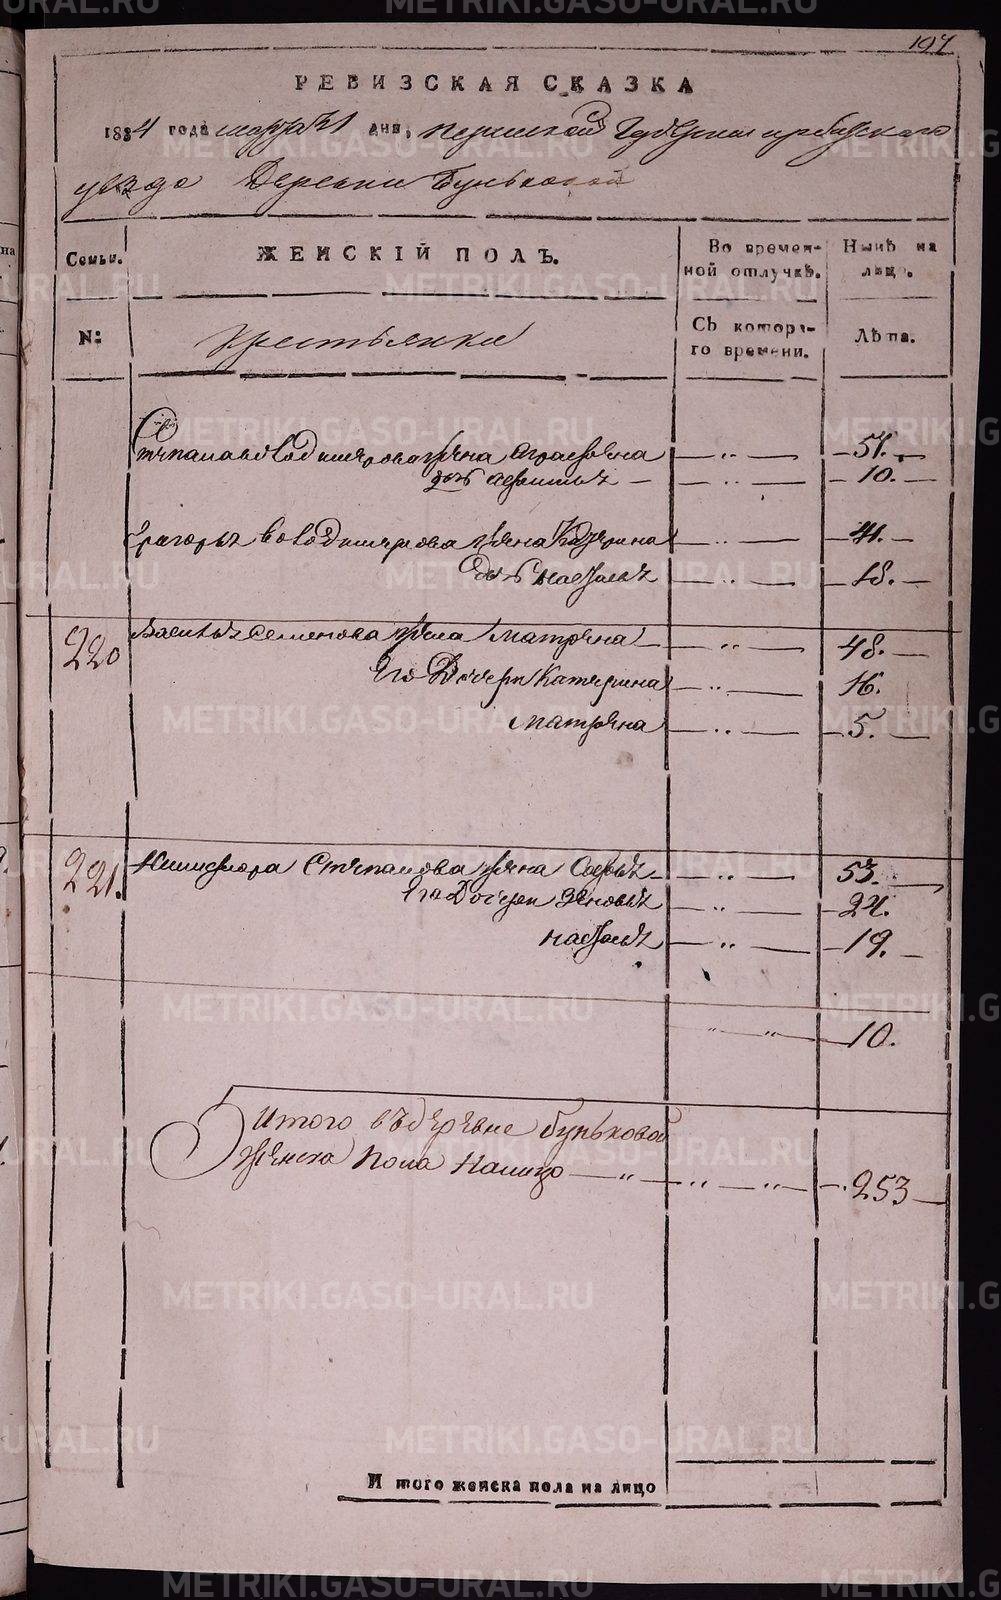 197
РЕВИЗСКАЯ СКАЗКА
1834 года марта 1 дня, Пермской Губернии ирбитскаго
уезда Деревни Буньковой
Семьи.
ЖЕНСКІЙ ПОЛЪ.
Во времен-
ной отлучкѣ.
Нынѣ на
лицо.
N:
крестьянка
Съ котора-
го времени.
Лѣта.
Степана володимерова жена
дочь — 10.
Григорья володимерова жена Катерина 41.
дочь настасья 18.
220 Василья семенова жена матрёна 48.
Его Дочери Катерина 16.
матрёна 5.
221. Никифора Степанова жена Софья 53.
Его Дочери зеновья 24.
настасья 19.
10.
Итого въ деревне буньковой
женска пола налицо 253
И того женска пола на лицо
METRIKI.GASO-URAL.RU